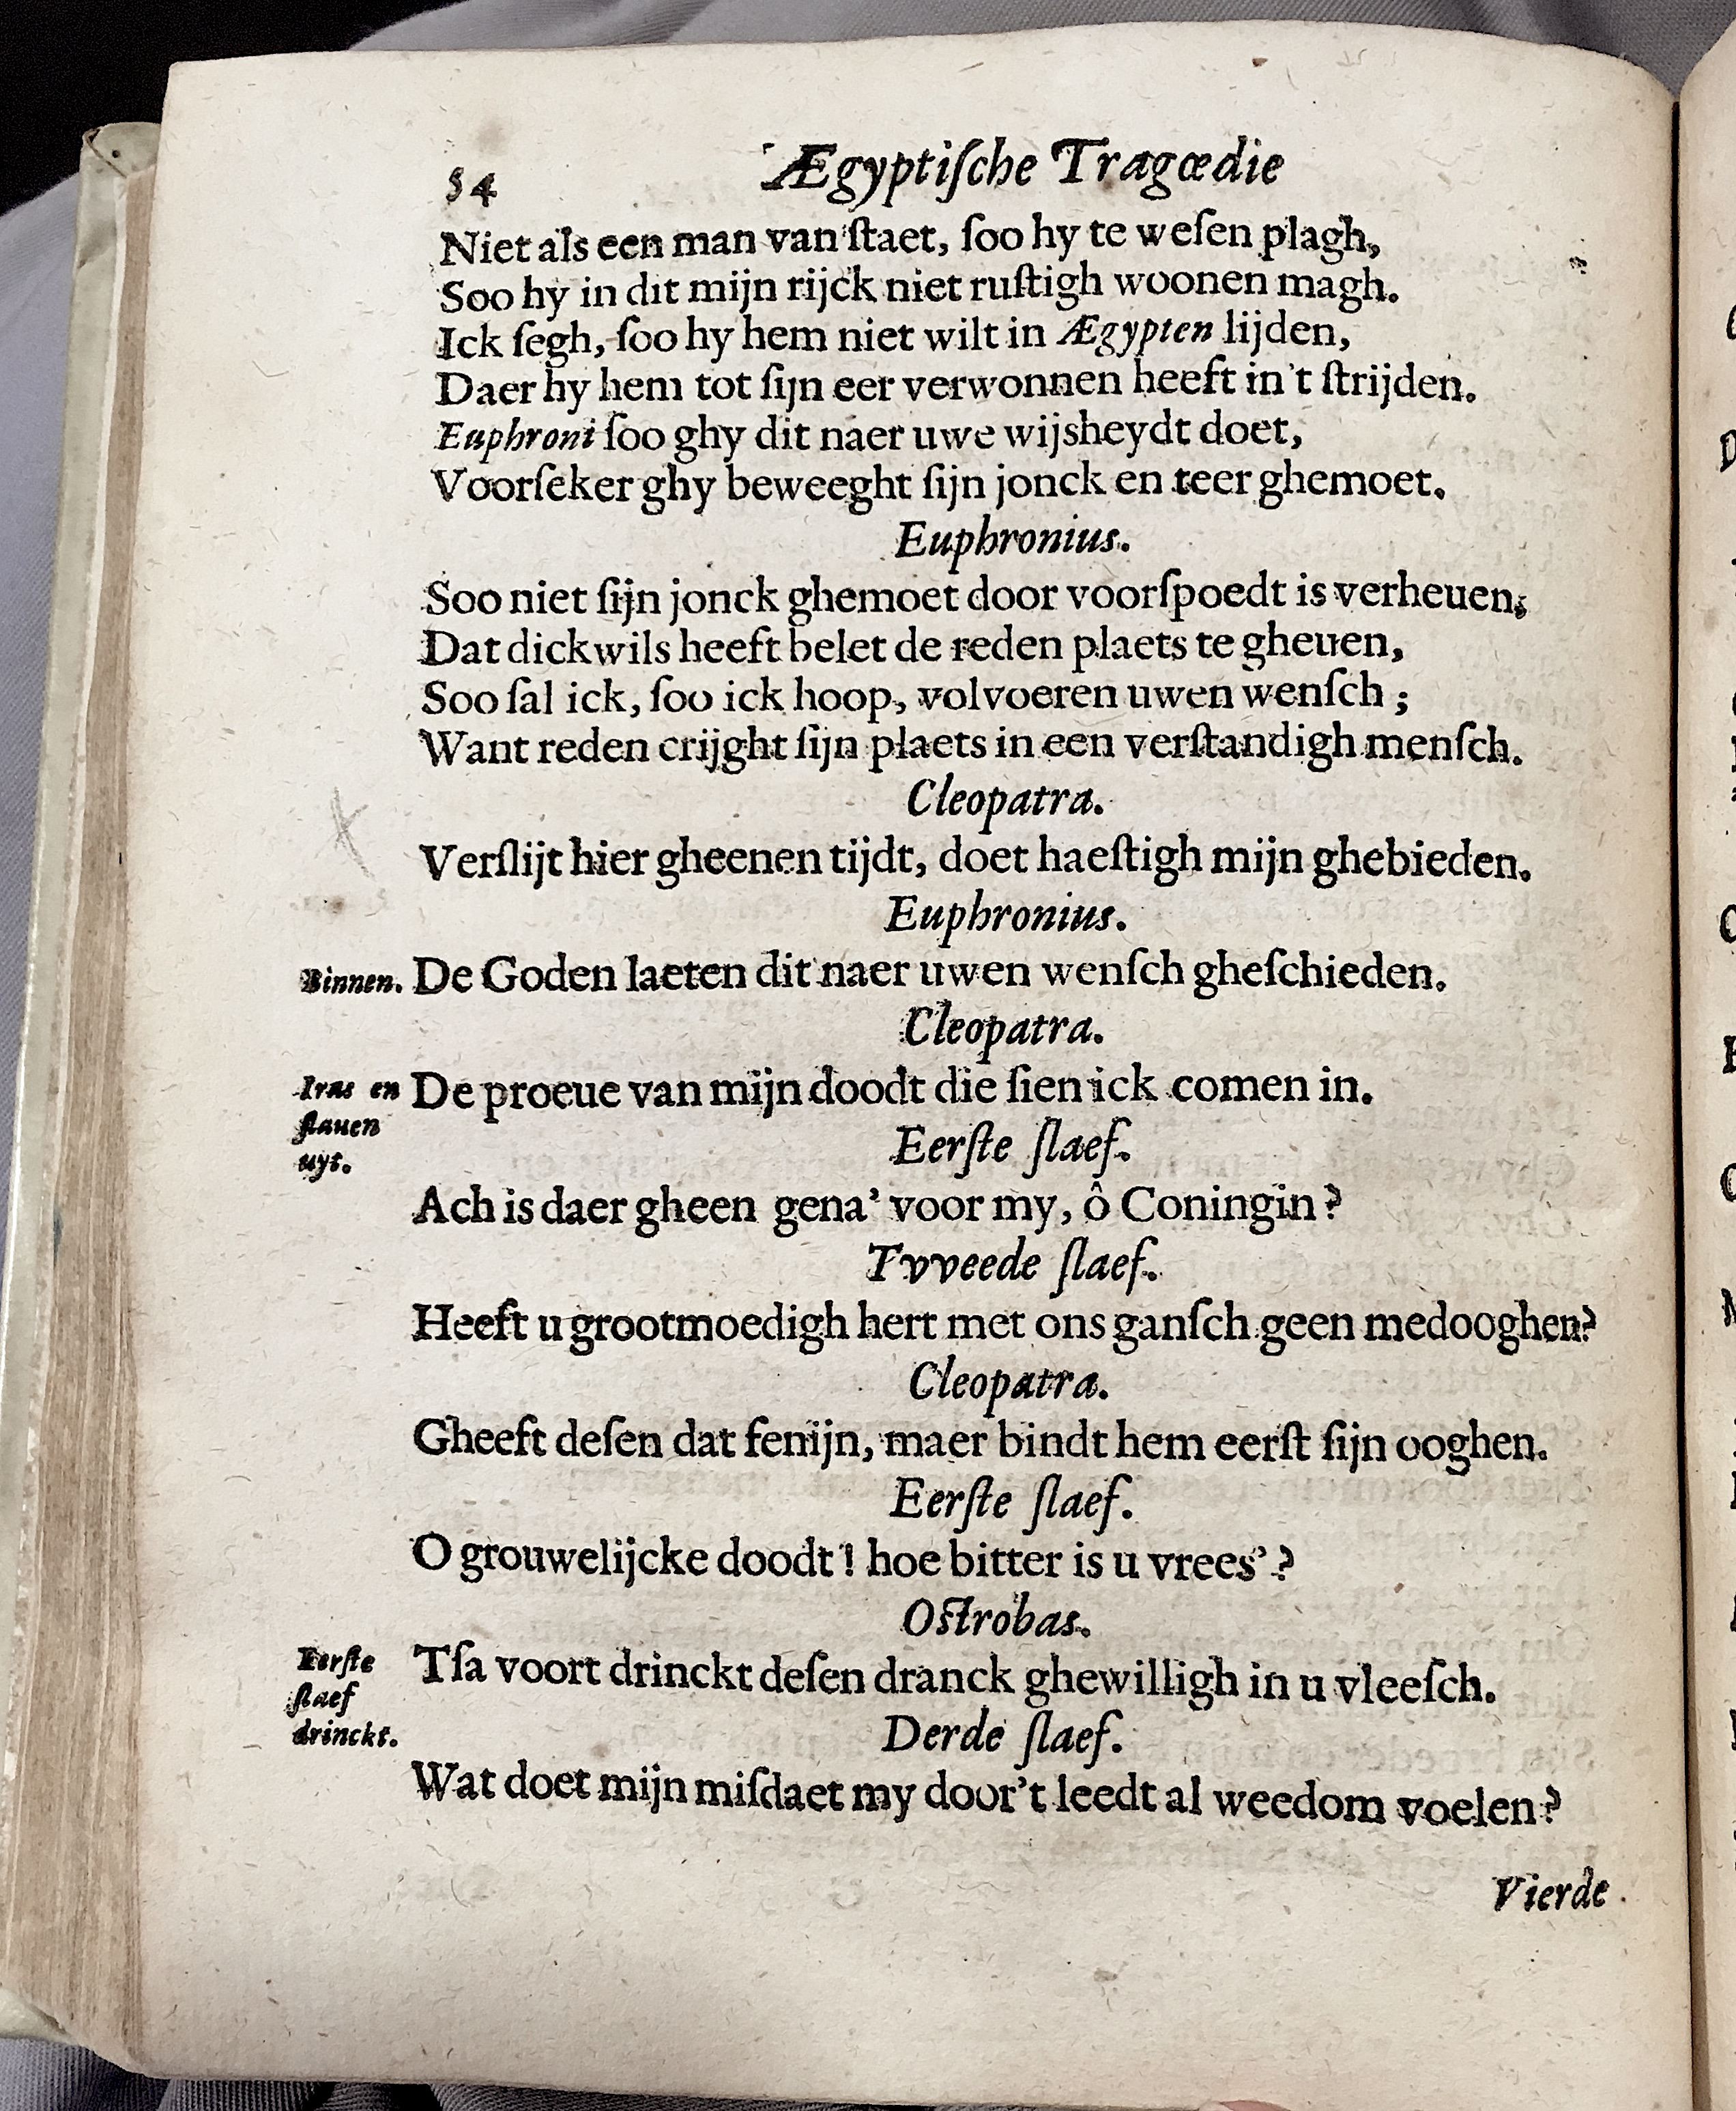 54 Ægyptiſche Tragœdie
Niet als een man van ſtaet, ſoo hy te weſen plagh,
Soo hy in dit mijn rijck niet ruſtigh woonen magh.
Ick ſegh, ſoo hy hem niet wilt in Ægypten lijden,
Daer hy hem tot ſijn eer verwonnen heeft in't ſtrijden.
Euphroni ſoo ghy dit naer uwe wijsheydt doet,
Voorſeker ghy beweeght ſijn jonck en teer ghemoet.
Euphronius.
Soo niet ſijn jonck ghemoet door voorſpoedt is verheuen;
Dat dickwils heeft belet de reden plaets te gheuen,
Soo ſal ick, ſoo ick hoop, volvoeren uwen wenſch;
Want reden crijght ſijn plaets in een verſtandigh menſch.
Cleopatra.
Verſlijt hier gheenen tijdt, doet haeſtigh mijn ghebieden.
Euphronius.
Binnen. De Goden laeten dit naer uwen wenſch gheſchieden.
Cleopatra.
Iras en ſlauen uyt.
De proeue van mijn doodt die ſien ick comen in.
Eerſte ſlaef.
Ach is daer gheen gena' voor my, ô Coningin?
Tvveede ſlaef.
Heeft u grootmoedigh hert met ons ganſch geen medooghen?
Cleopatra.
Gheeft deſen dat fenijn, maer bindt hem eerſt ſijn ooghen.
Eerſte ſlaef.
O grouwelijcke doodt! hoe bitter is u vrees'?
Oſtrobas.
Eerſte ſlaef drinckt.
Tſa voort drinckt deſen dranck ghewilligh in u vleeſch.
Derde ſlaef.
Wat doet mijn miſdaet my door't leedt al weedom voelen?
Vierde